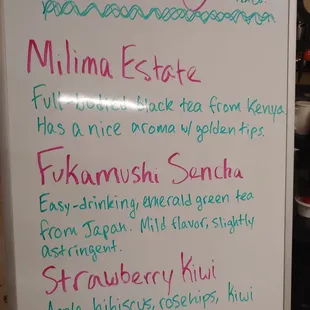 Milima Estate
Full-bodied black tea from Kenya.
Has a nice aroma w/ golden tips.
Fukamushi Sencha
Easy-drinking, emerald green tea
from Japan. Mild flavor, slightly
astringent.
Strawberry Kiwi
Apple, hibiscus, rosehips, kiwi